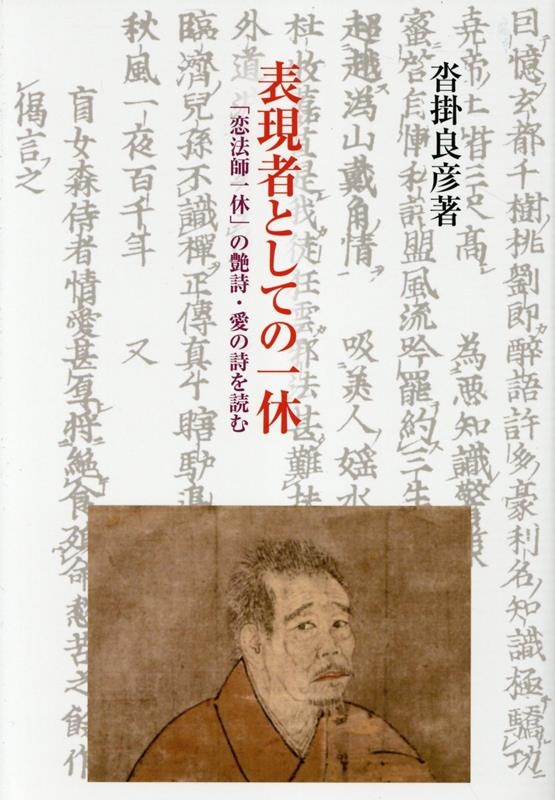 沓掛良彦著
表現者としての一休
「恋法師一休」の艶詩・愛の詩を読む
憶玄都千樹桃劉郎醉語許多豪利名知識極驕功
堯帝土堦三尺高 為惡知識警策
盟風流吟罷約三生
超越溈山戴角情 吸美人婬水
杜牧 是我徒狂雲邪法甚難扶
外道
臨濟兒孫不識禪正傳真个瞎驢邊
秋風一夜百千年 又
盲女森侍者情愛甚厚将絶食殞命愁苦之餘作
偈言之